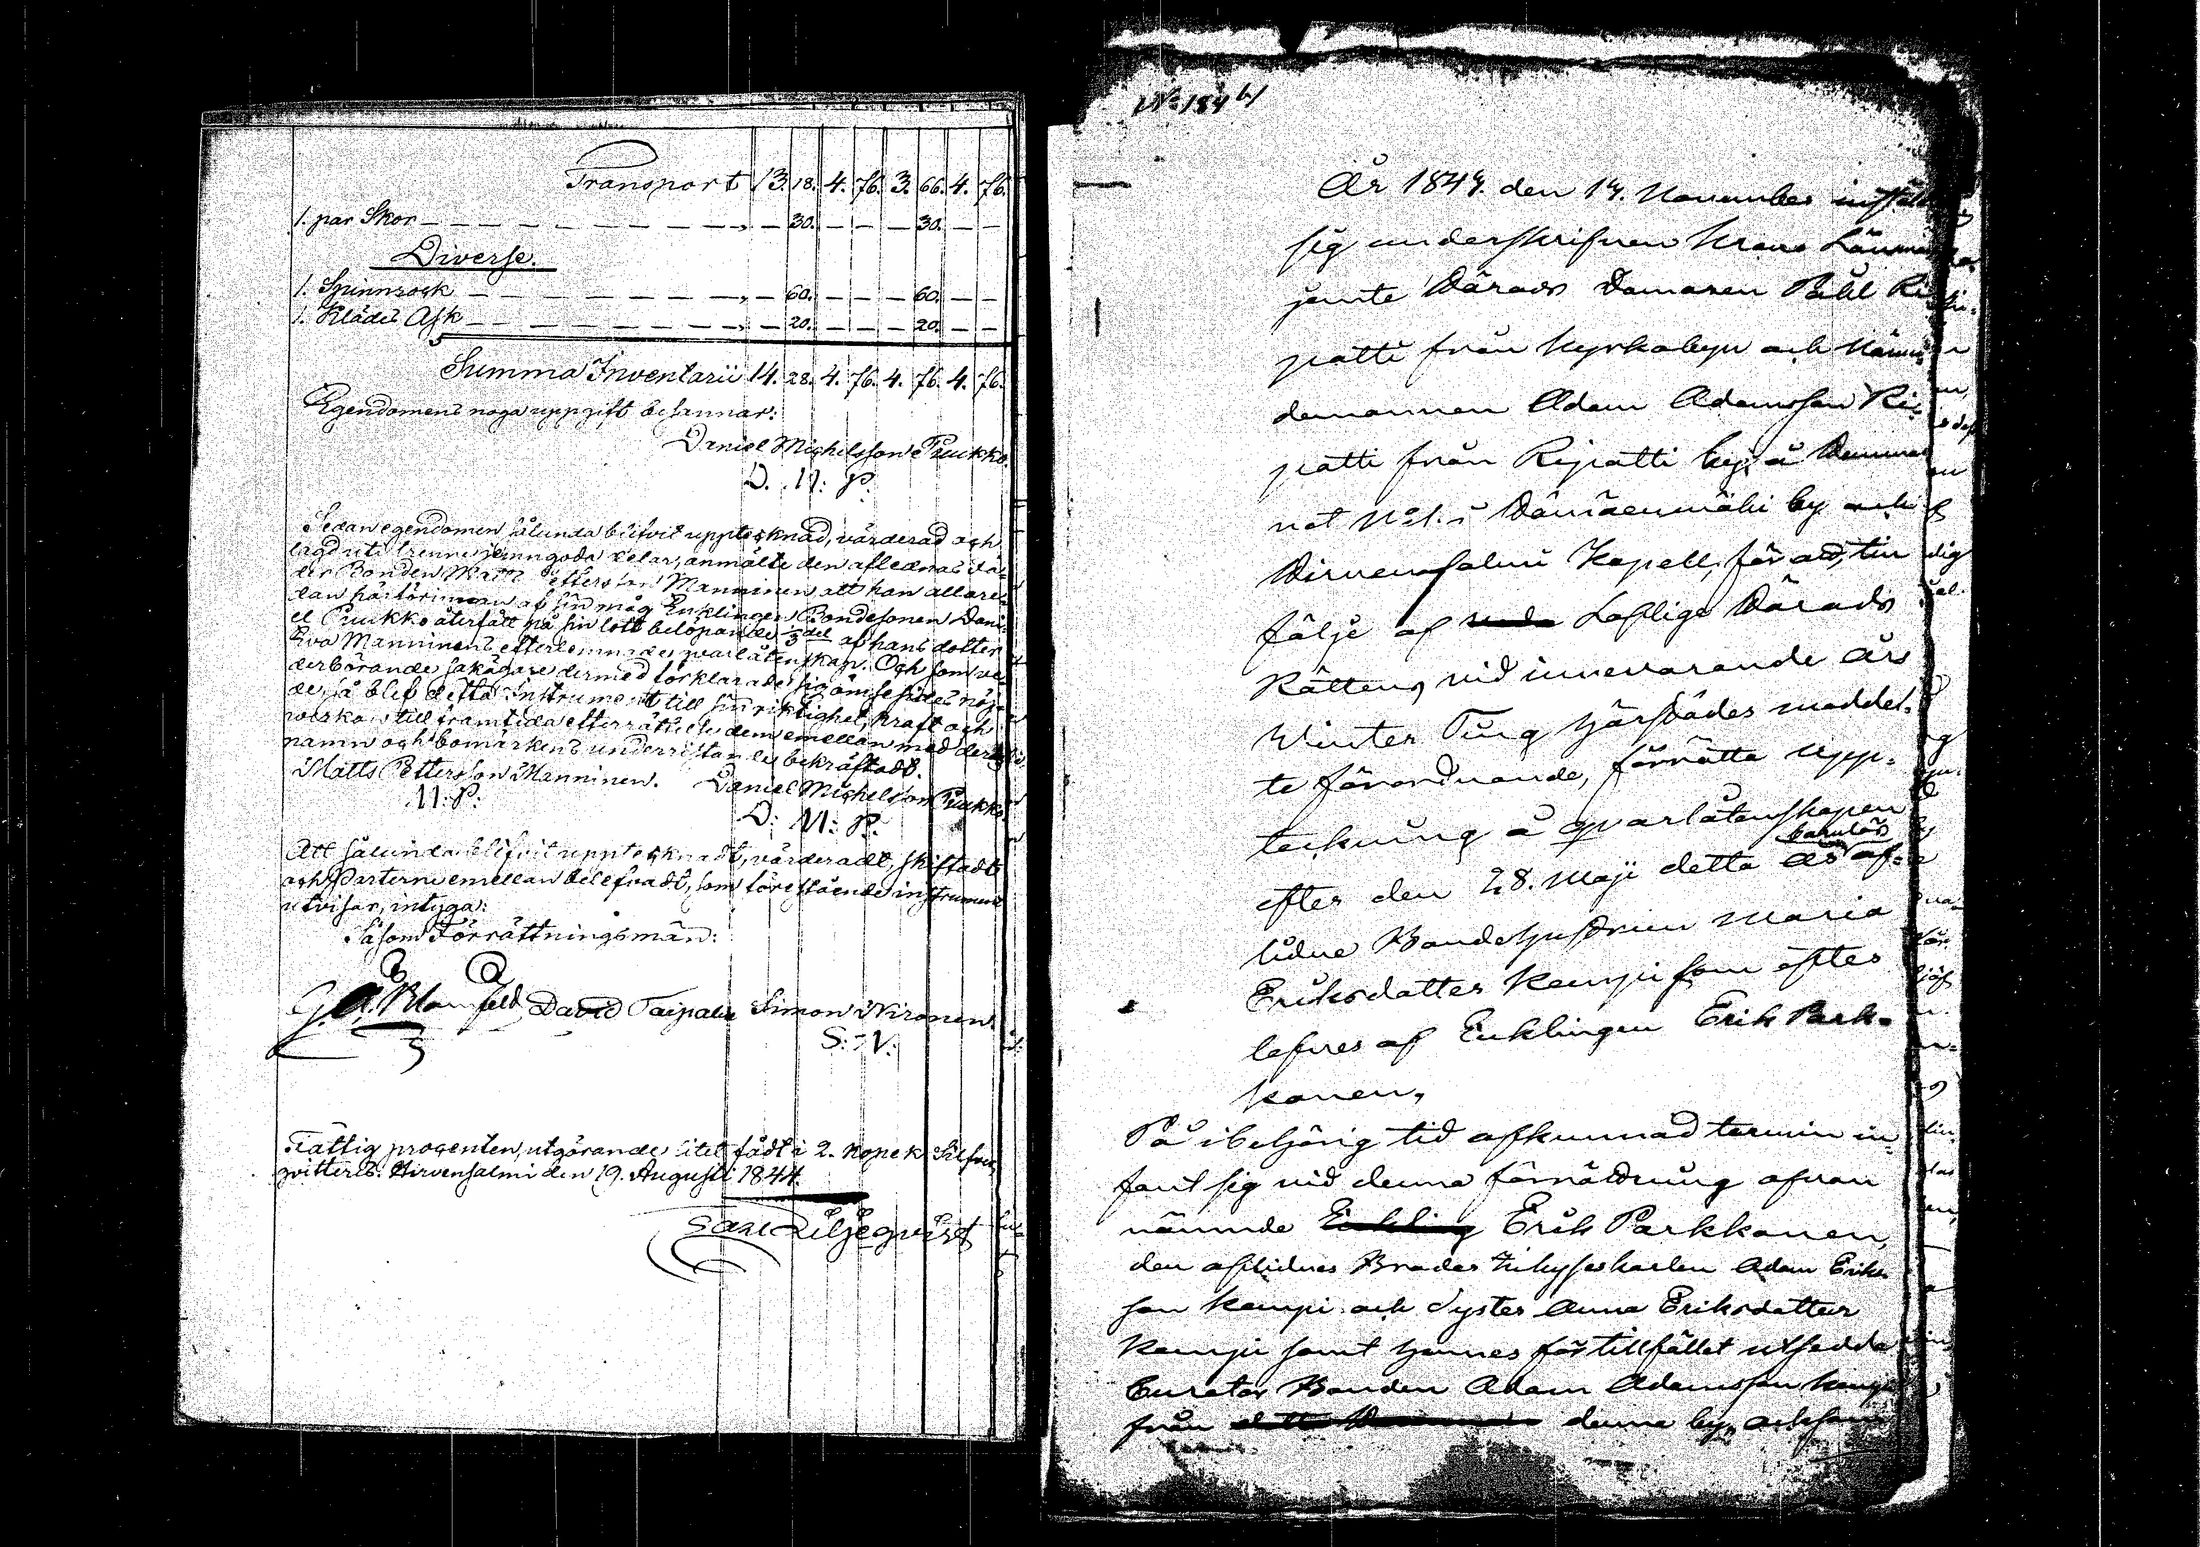 Transport 13. 18. 4. 76. 3. 66. 4. 76.
1. par Skor — — — — — — — — „ — 30. — — — 30. — —
Diverse.
1. Spinnrock — — — — — — — „ — 60. — — — 60. — —
1. Kläde Ask — — — — — — — „ — 20. — — — 20. — —
Summa Inventarii 14. 28. 4. 76. 4. 76. 4. 76.
Egendomens noga uppgift besannar:
Daniel Michelsson Puukko.
D. M: P.
Sedan egendomen sålunda blifvit upptecknad, värderad och
lagd uti trenne jemngoda delar, anmälte den aflednas Fa-
der Bonden Matts Pettersson Manninen att han allare-
dan härförinnan af sin måg Enklingen Bondesonen Dani-
el Puukko återfått på sin lott belöpande 1/3 del af hans dotter
Eva Manninens efterlemnade qvarlåtenskap. Och som ve-
derbörande sakägare dermed förklarade sig ömsesides nöj-
de, så blef detta Instrument till sin riktighet, kraft och
verkan till framtida efterrättelse dem emellan med deras
namn och bomärkens underristande bekräftadt.
Matts Pettersson Manninen. Daniel Michelsson Puukko.
M: P: D: M: P:
Att sålunda blifvit upptecknadt, värderadt, skiftadt
och Parterne emellan belefvadt, som föreståënde instrument
utvisar, intyga:
Såsom Förrättningsmän:
G. A. Blomfeld David Taipale Simon Wironen
S: V:
Fattig procenten, utgörande litet född i 2. Kopek Silfver
qvitteras. Hirvensalmi den 19. Augusti 1844.
Carl Liljeqvist
No 184
År 1844. den 14. November inställde
sig underskrifven Krono Länsman
jemte Härads Domaren Påhl Ri-
patti från Kyrkobyn och Näm-
demannen Adam Adamsson Ri-
patti från Ripatti by, å Hemma-
net No 1. i Väisäenmäki by och
Hirvensalmi Kapell, för att, till
följe af Loflige Härads
Rättens vid innevarande års
Winter Ting härstädes meddel-
te förordnande, förrätta upp-
teckning å qvarlåtenskapen
efter den 28. Maji detta år barnlös af-
lidne Bondehustrun Maria
Eriksdotter Kempi som efter
lefves af Enklingen Erik Park-
konen,
På i behörig tid afkunnad termin in-
fant sig vid denna förrättning ofvan
nämnde Enkling Erik Parkkonen,
den aflidnes Broder Inhyseskarlen Adam Eriks
son Kempi och Syster Anna Eriksdotter
Kempi samt hennes för tillfället utsedda
Curator Bonden Adam Adamsson Kempi
från denna by, och som